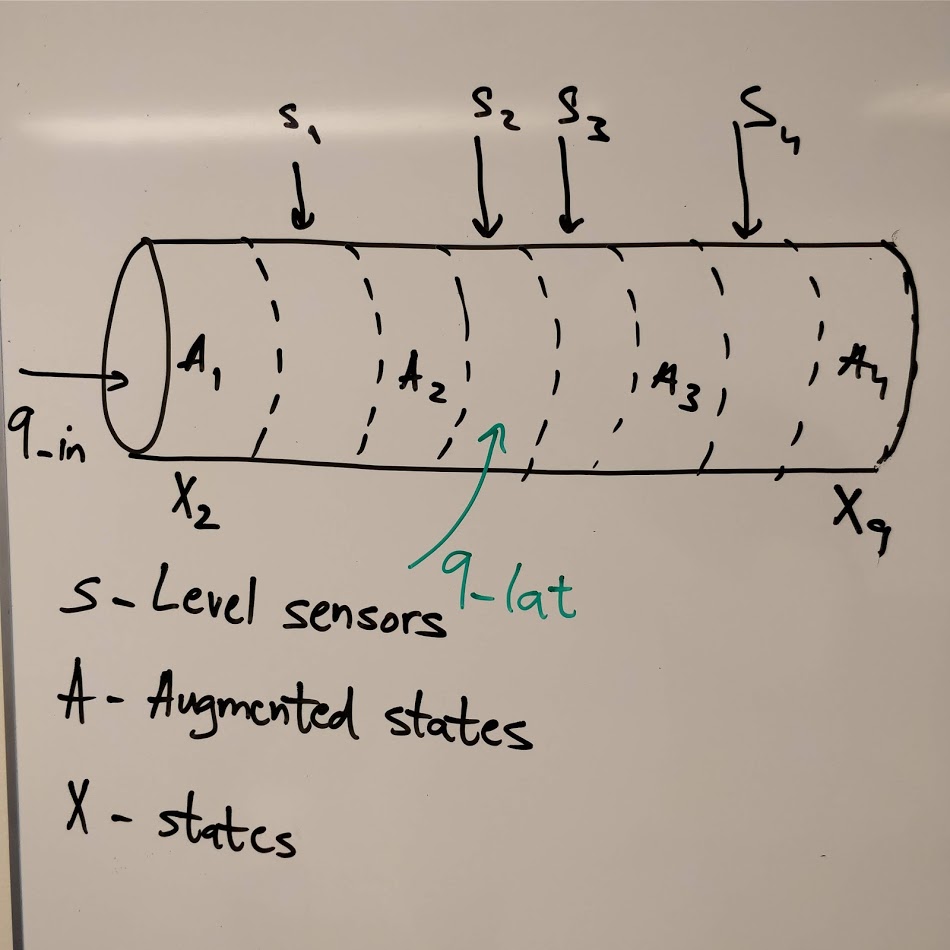 S₁ S₂ S₃ S₄
A₁ A₂ A₃ A₄
q_in
X₂ X₉
q_lat
S - Level sensors
A - Augmented states
X - states